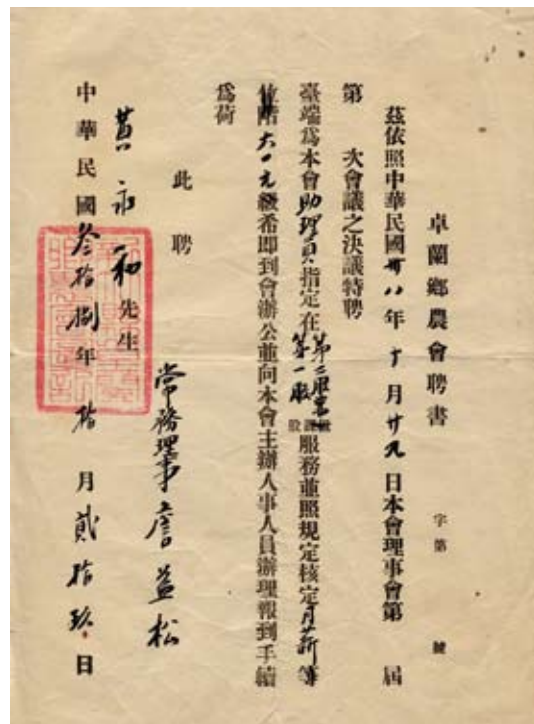 卓蘭鄉農會聘書
字第 號
茲依照中華民國卅八年十月廿九日本會理事會第 屆
第 次會議之決議特聘
臺端為本會助理員指定在第一股服務並照規定核定月薪等
六一元級希即到會辦公並向本會主辦人事人員辦理報到手續
為荷
此聘
黃永和先生
常務理事 詹益松
中華民國叁拾捌年拾月貳拾玖日